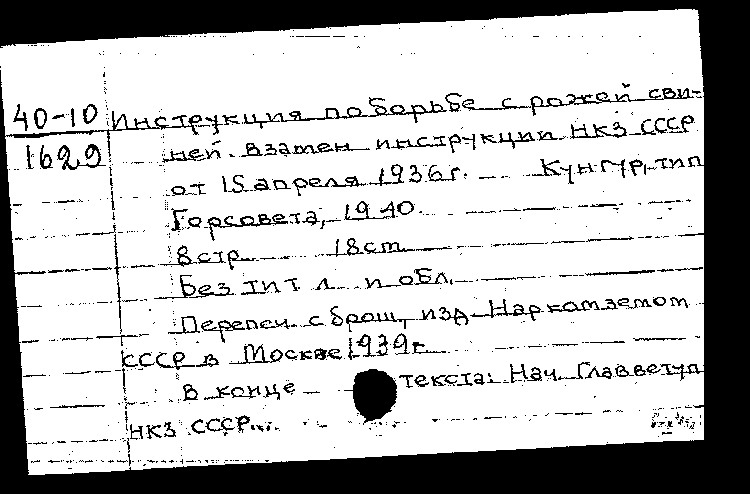 40-10 Инструкция по борьбе с рожей сви-
1629 ней. Взамен инструкции НКЗ СССР
от 15 апреля 1936 г. Кунгур, тип
Горсовета, 1940.
8 стр. 18 ст.
Без тит л. и обл.
Перепеч. с брош, изд. Наркомземом
СССР в Москве 1939 г.
В конце текста: Нач. Главветуп
НКЗ СССР...